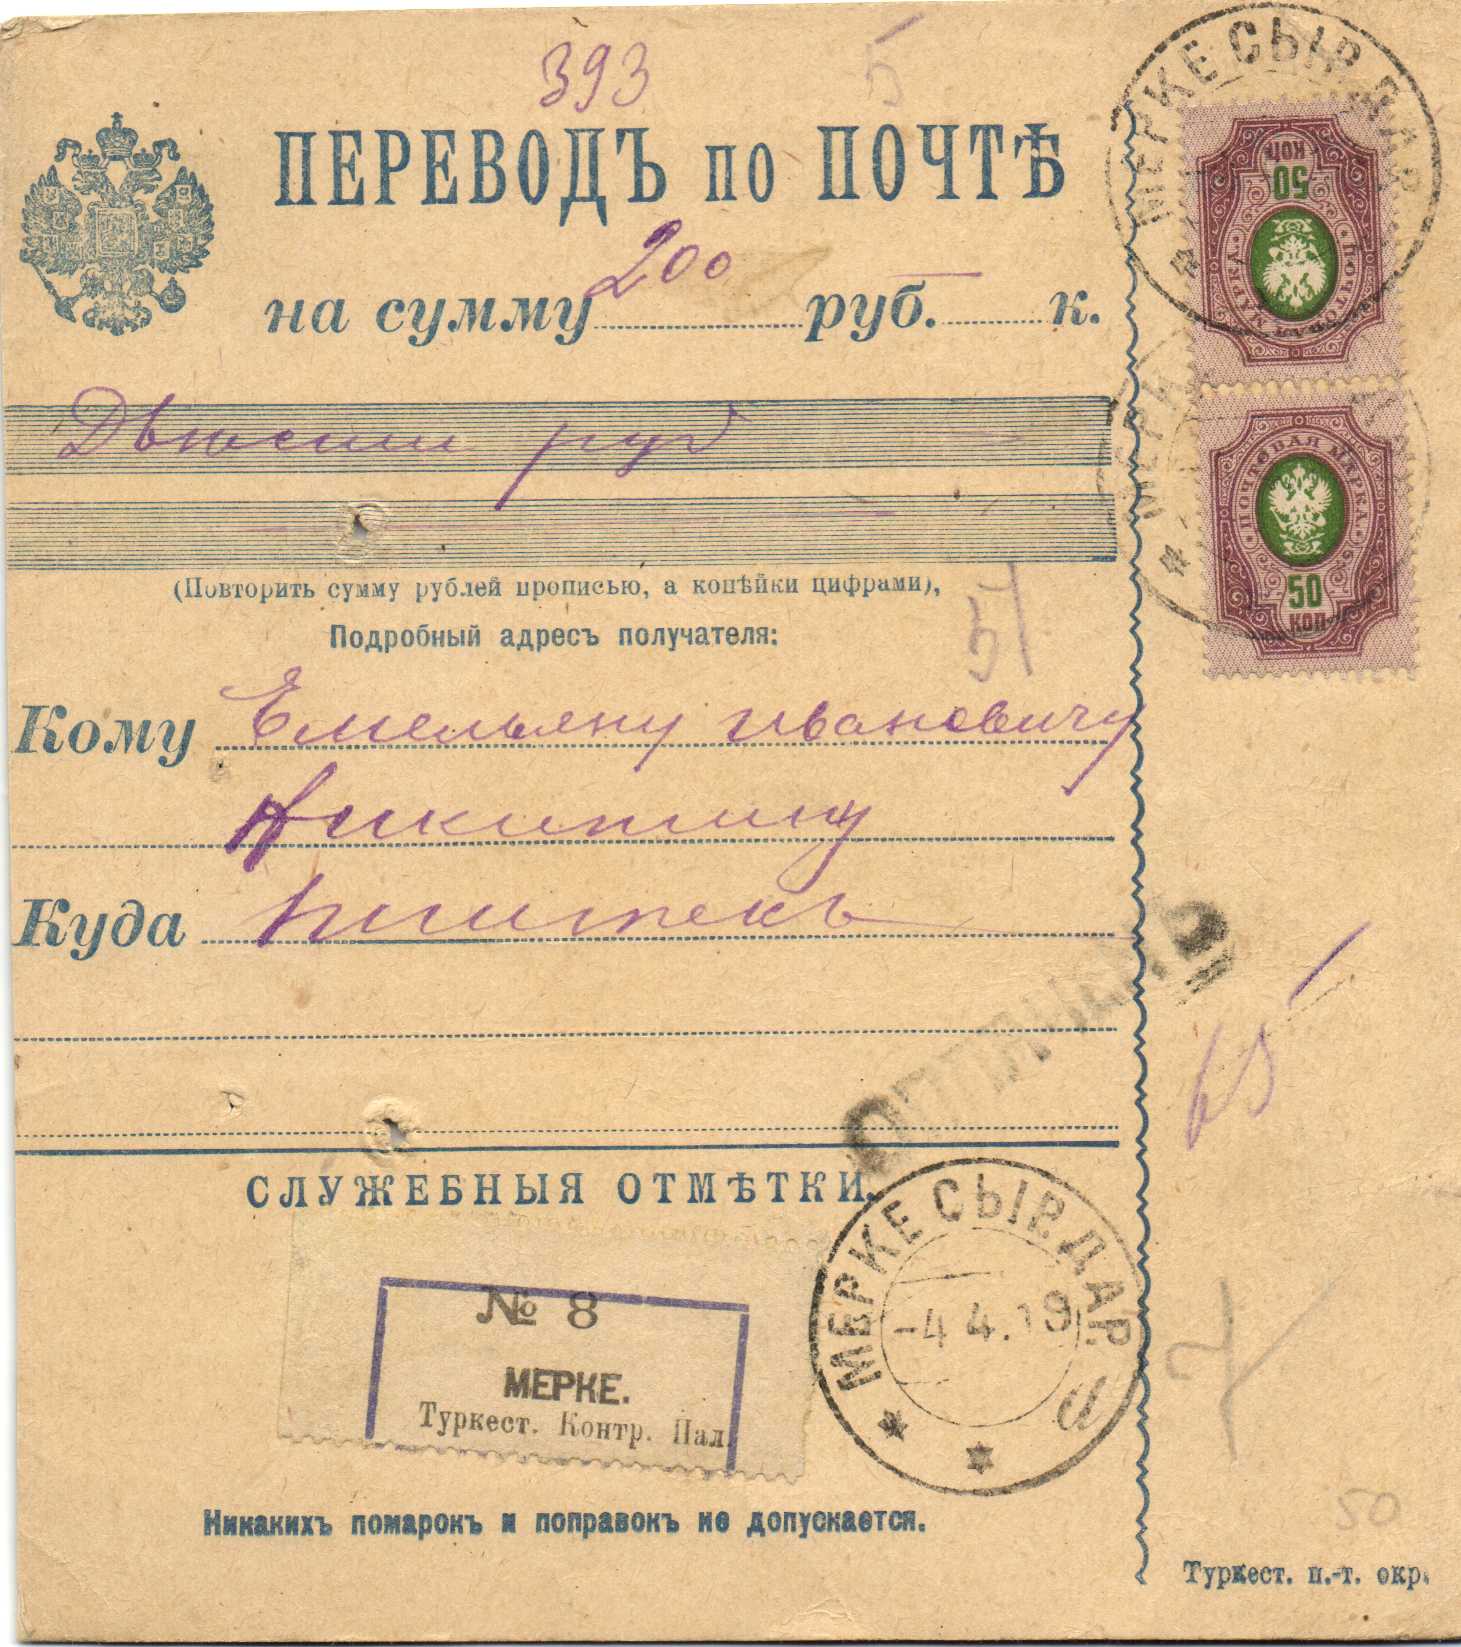 393
5
ПЕРЕВОДЪ по ПОЧТѢ
на сумму 200 руб. — к.
Двѣсти руб
(Повторить сумму рублей прописью, а копѣйки цифрами),
57
Подробный адресъ получателя:
Кому Емельяну Ивановичу
Никитину
Куда Пишпекъ
СЛУЖЕБНЫЯ ОТМѢТКИ.
№ 8
МЕРКЕ.
Туркест. Контр. Пал.
МЕРКЕ СЫР. ДАР.
-4 4.19
а
Никакихъ помарокъ и поправокъ не допускается.
МЕРКЕ СЫР. ДАР.
50 КОП.
ПОЧТОВАЯ МАРКА.
МЕРКЕ
ПОЧТОВАЯ МАРКА.
50
КОП.
65
50
Туркест. п.-т. окр.